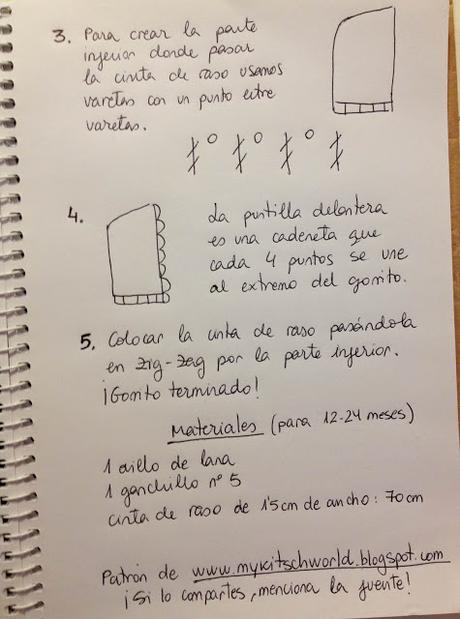 3. Para crear la parte
inferior donde pasar
la cinta de raso usamos
varetas con un punto entre
varetas.
4. La puntilla delantera
es una cadeneta que
cada 4 puntos se une
al extremo del gorrito.
5. Colocar la cinta de raso pasándola
en zig-zag por la parte inferior.
¡Gorrito terminado!
Materiales (para 12-24 meses)
1 ovillo de lana
1 ganchillo nº 5
cinta de raso de 1'5cm de ancho: 70cm
Patrón de www.mykitschworld.blogspot.com
¡Si lo compartes, menciona la fuente!